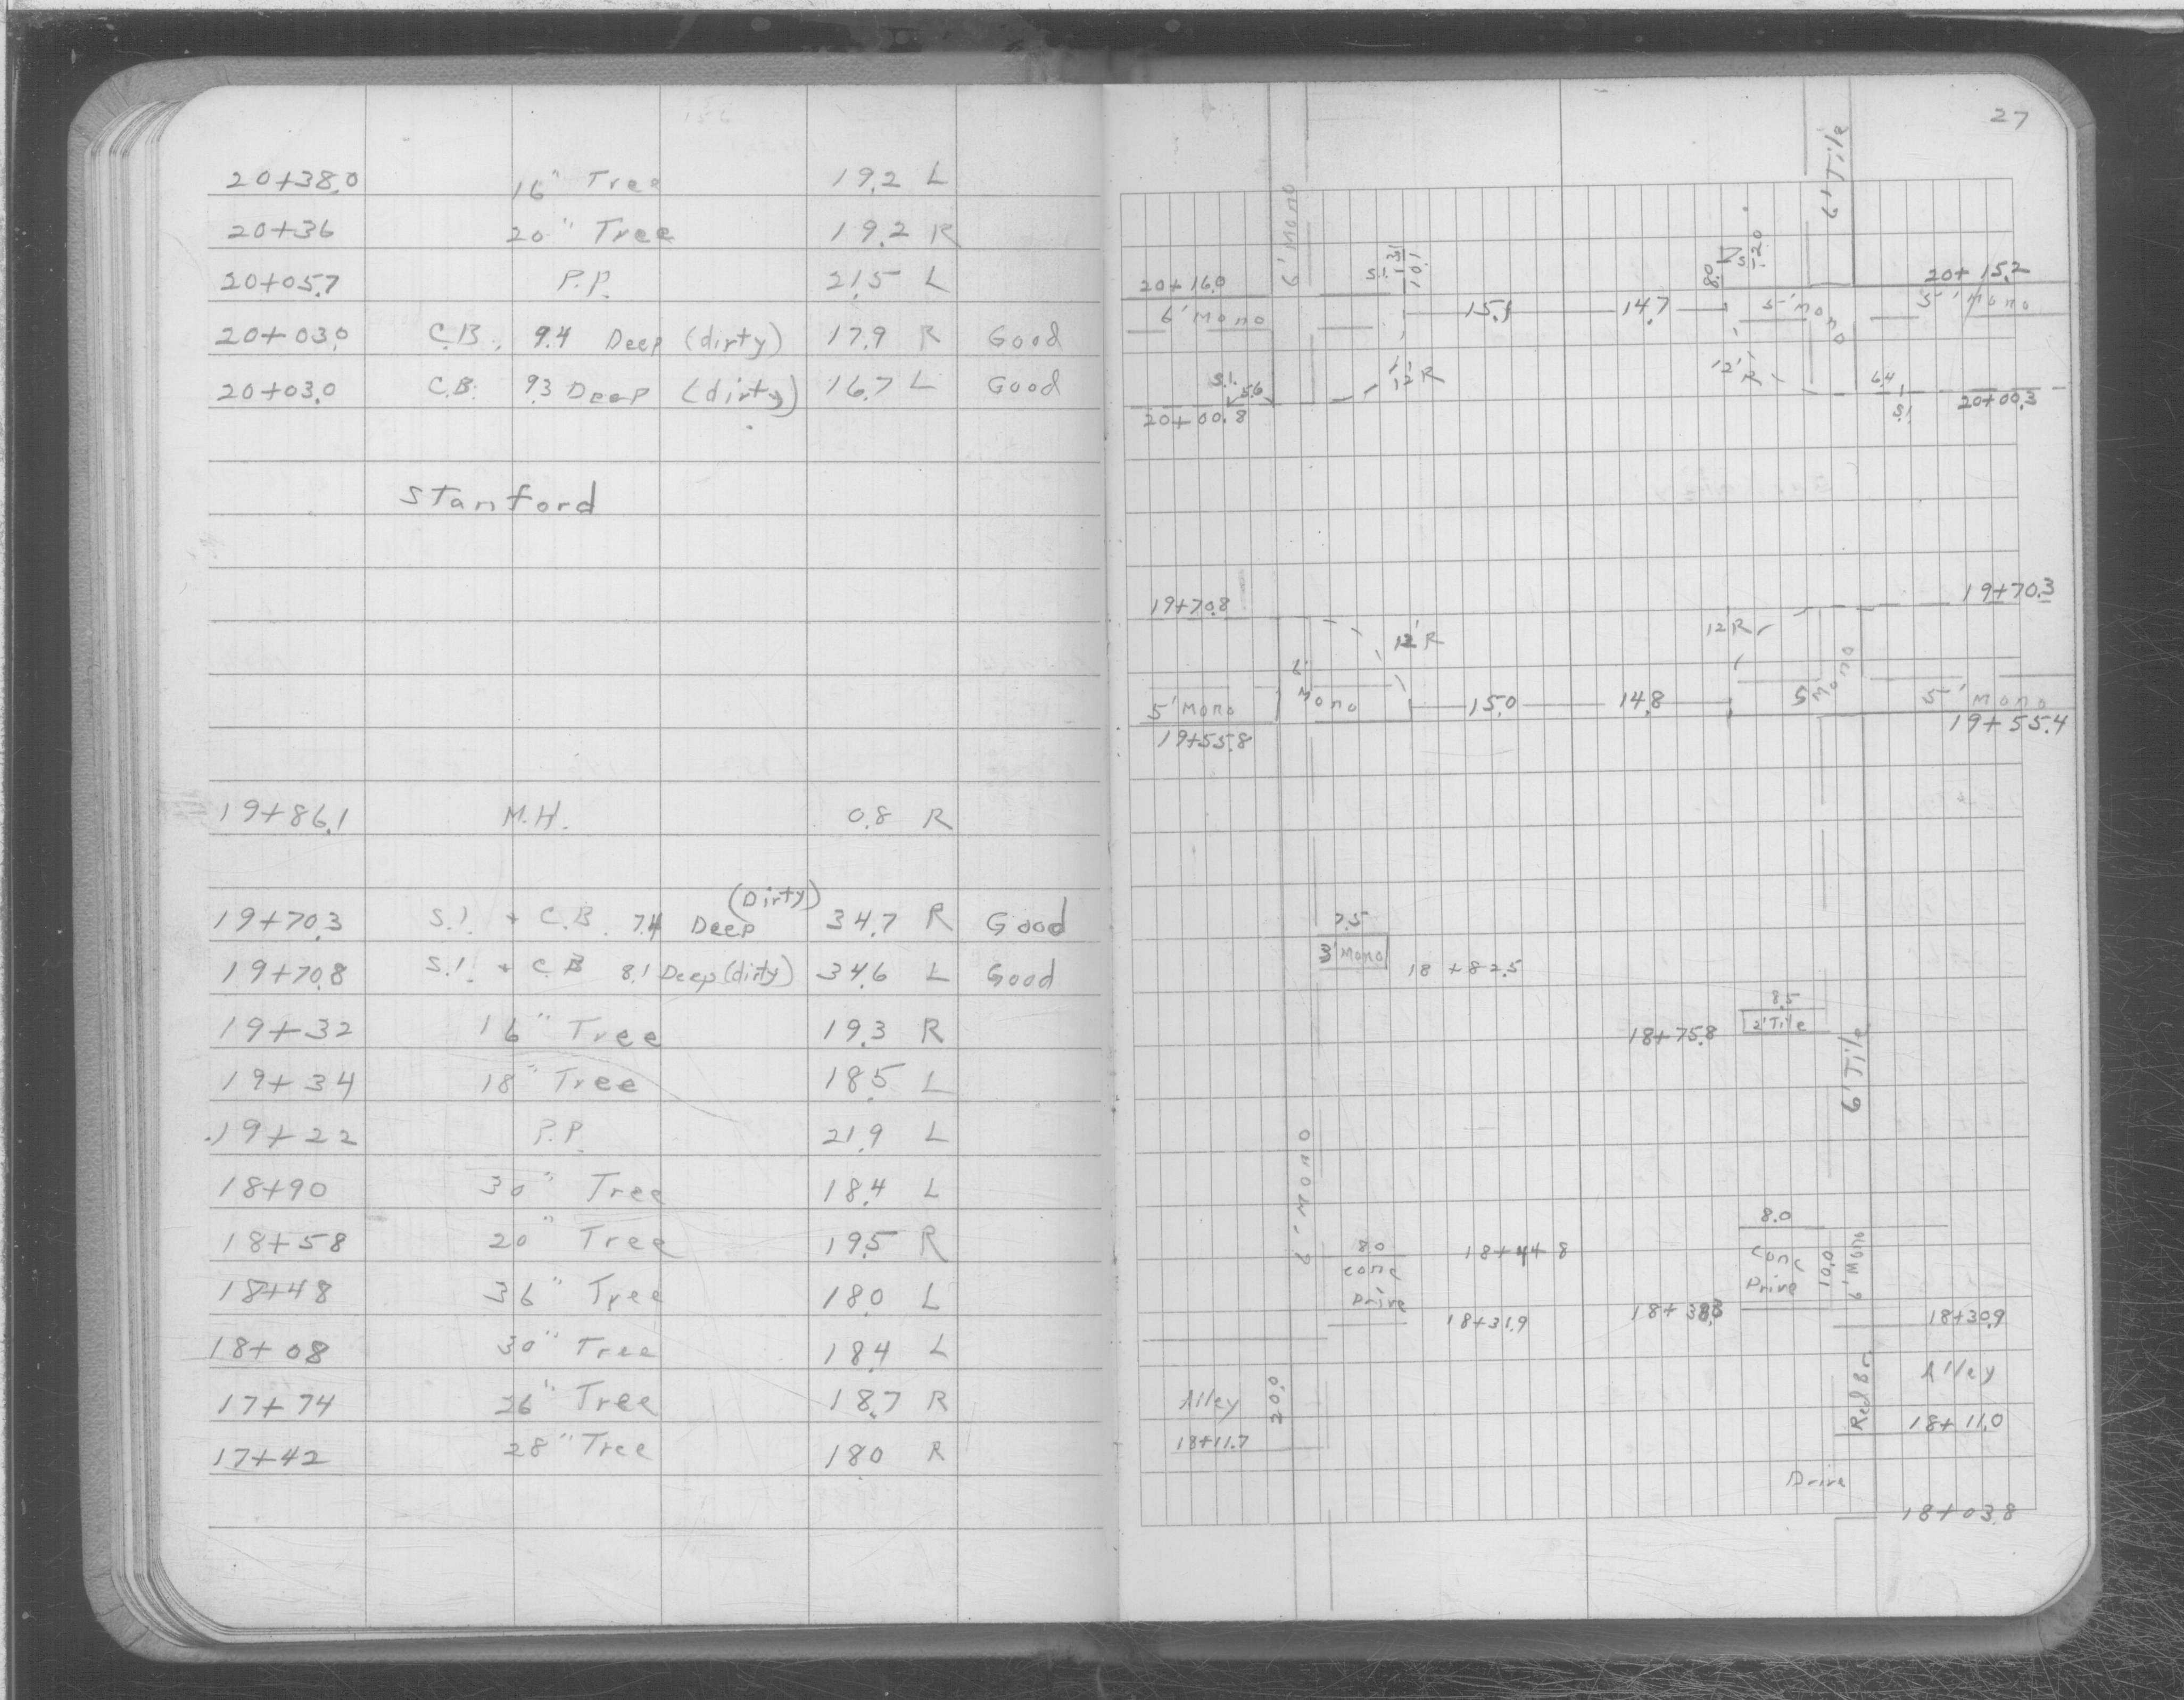 20+38.0 16" Tree 19.2 L
20+36 20" Tree 19.2 R
20+05.7 P.P. 21.5 L
20+03.0 C.B. 9.4 Deep (dirty) 17.9 R Good
20+03.0 C.B. 9.3 Deep (dirty) 16.7 L Good
Stanford
19+86.1 M.H. 0.8 R
(Dirty)
19+70.3 S.I. + C.B. 7.4 Deep 34.7 R Good
19+70.8 S.I. + C.B 8.1 Deep (dirty) 34.6 L Good
19+32 16" Tree 19.3 R
19+34 18" Tree 18.5 L
19+22 P.P. 21.9 L
18+90 30" Tree 18.4 L
18+58 20" Tree 19.5 R
18+48 36" Tree 18.0 L
18+08 30" Tree 18.4 L
17+74 26" Tree 18.7 R
17+42 28" Tree 18.0 R
27
6' Mono
6' Tile
S.I. 10.1
8.0 S.I. 20
20+16.0
20+15.2
6' Mono
15.1 14.7
5' Mono
5' Mono
12' R
12' R
S.I. 5.6
6.4 S.I.
20+00.8
20+00.3
19+70.8
19+70.3
12' R
12 R
6' Mono
5' Mono
15.0 14.8
5' Mono
5' Mono
19+55.8
19+55.4
7.5
3' Mono
18+82.5
8.5
2' Tile
18+75.8
6' Tile
6' Mono
8.0
Conc
Drive
18+44.8
18+31.9
8.0
Conc
Drive
10.0
6' Mono
18+30.9
Alley
20.0
18+11.7
Red Br.
Alley
18+11.0
Drive
18+03.8